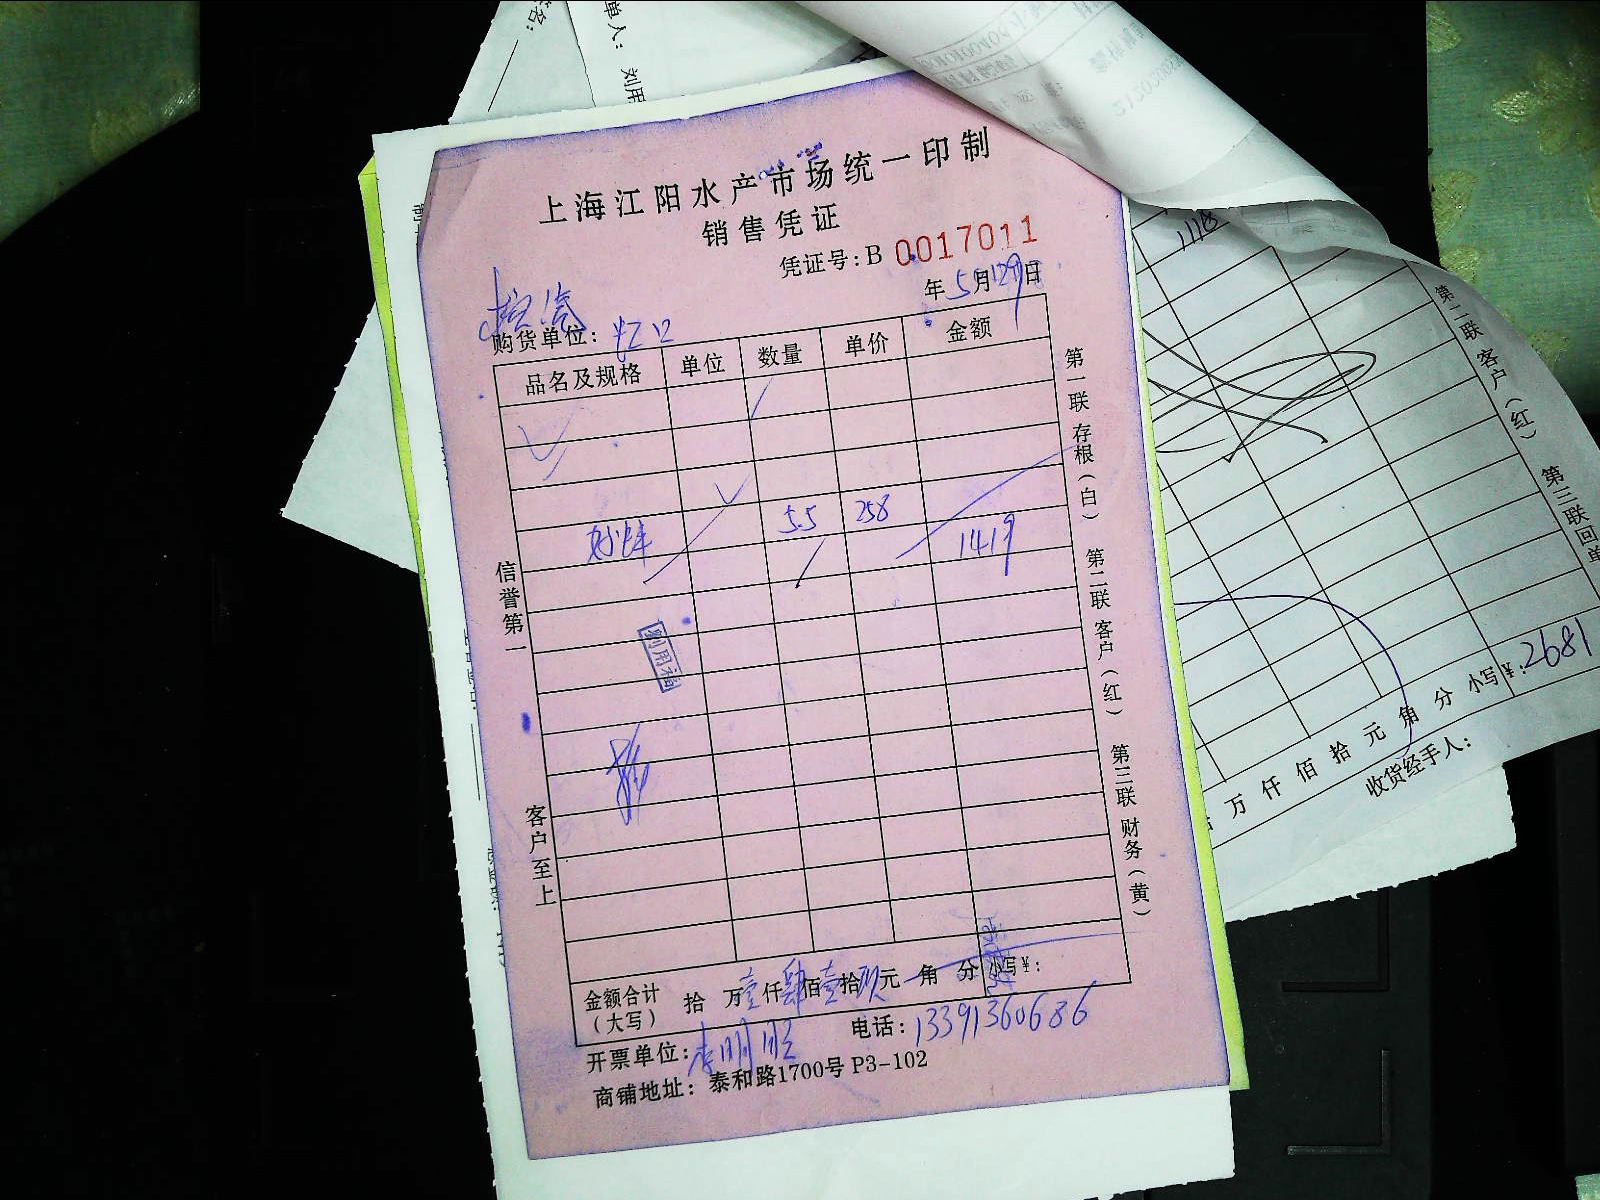 上海江阳水产市场统一印制
销售凭证
凭证号:B 0017011
年5月29日
购货单位: 虹口
品名及规格 单位 数量 单价 金额
5.5 258 1419
刘用福
信誉第一
客户至上
第一联 存根(白) 第二联 客户(红) 第三联 财务(黄)
金额合计(大写) 拾 万壹仟肆佰壹拾玖元 角 分 小写¥:
开票单位: 李明顺 电话: 13391360686
商铺地址: 泰和路1700号 P3-102
单人: 刘用
签名:
1118
第二联 客户(红) 第三联 回单
万 仟 佰 拾 元 角 分 小写¥: 2681
收货经手人: